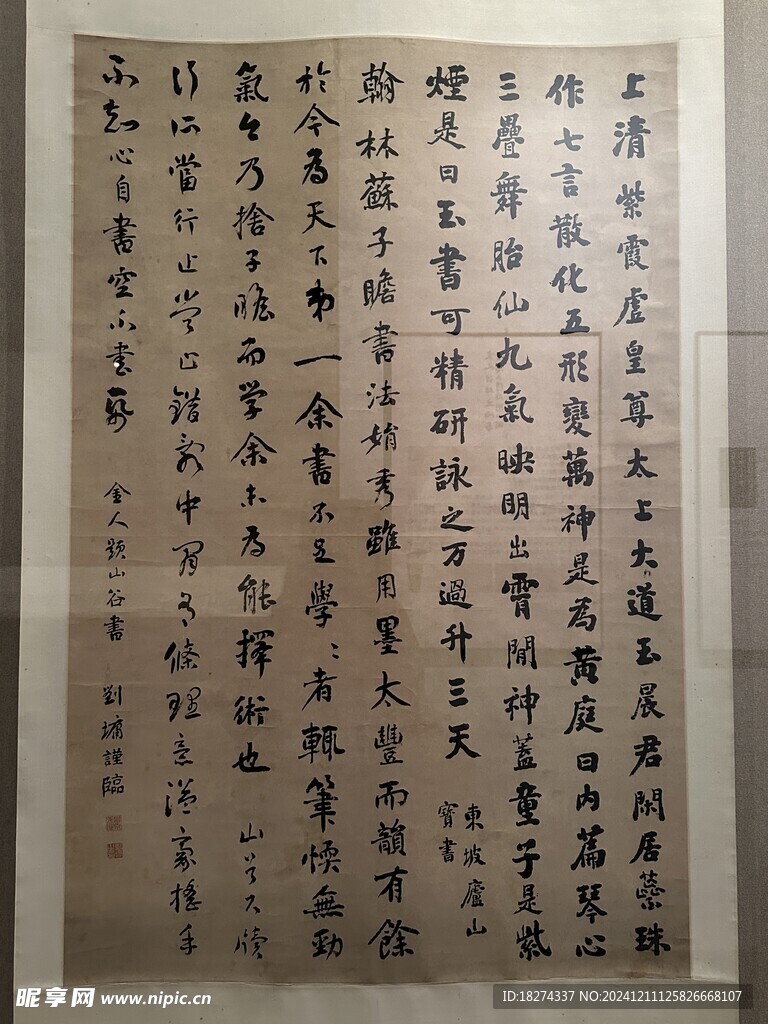 上清紫霞虛皇尊太上大道玉晨君閑居蘂珠
作七言散化五形變萬神是為黃庭曰內篇琴心
三疊舞胎仙九氣映明出霄間神蓋童子是紫
煙是曰玉書可精研詠之万過升三天
東坡廬山
寶書
翰林蘇子瞻書法娟秀雖用墨太豐而韻有餘
於今為天下第一余書不足學〻者輒筆愞無勁
氣今乃捨子瞻而学余未為能擇術也
山谷尺牘
行所當行止當止錯亂中間有條理意溢豪搖手
不知心自書空不書紙
金人題山谷書
劉墉謹臨
昵享网 www.nipic.cn
ID:18274337 NO:20241211125826668107